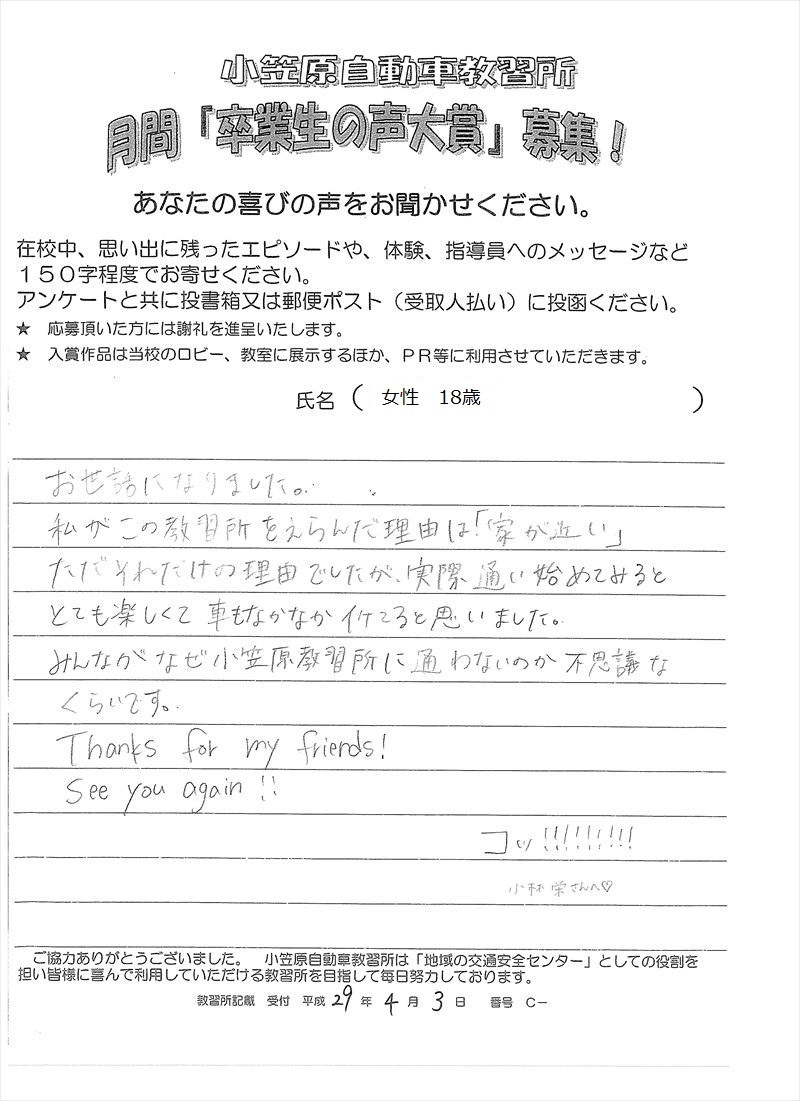 小笠原自動車教習所
月間「卒業生の声大賞」募集!
あなたの喜びの声をお聞かせください。
在校中、思い出に残ったエピソードや、体験、指導員へのメッセージなど
150字程度でお寄せください。
アンケートと共に投書箱又は郵便ポスト(受取人払い)に投函ください。
★ 応募頂いた方には謝礼を進呈いたします。
★ 入賞作品は当校のロビー、教室に展示するほか、PR等に利用させていただきます。
氏名( 女性 18歳 )
お世話になりました。
私がこの教習所をえらんだ理由は「家が近い」
ただそれだけの理由でしたが、実際通い始めてみると
とても楽しくて車もなかなかイケてると思いました。
みんながなぜ小笠原教習所に通わないのか不思議な
くらいです。
Thanks for my friends!
See you again!!
コッ!!!!!!!!!
小林栄さんへ♡
ご協力ありがとうございました。 小笠原自動車教習所は「地域の交通安全センター」としての役割を
担い皆様に喜んで利用していただける教習所を目指して毎日努力しております。
教習所記載 受付 平成29年4月3日 番号 C-